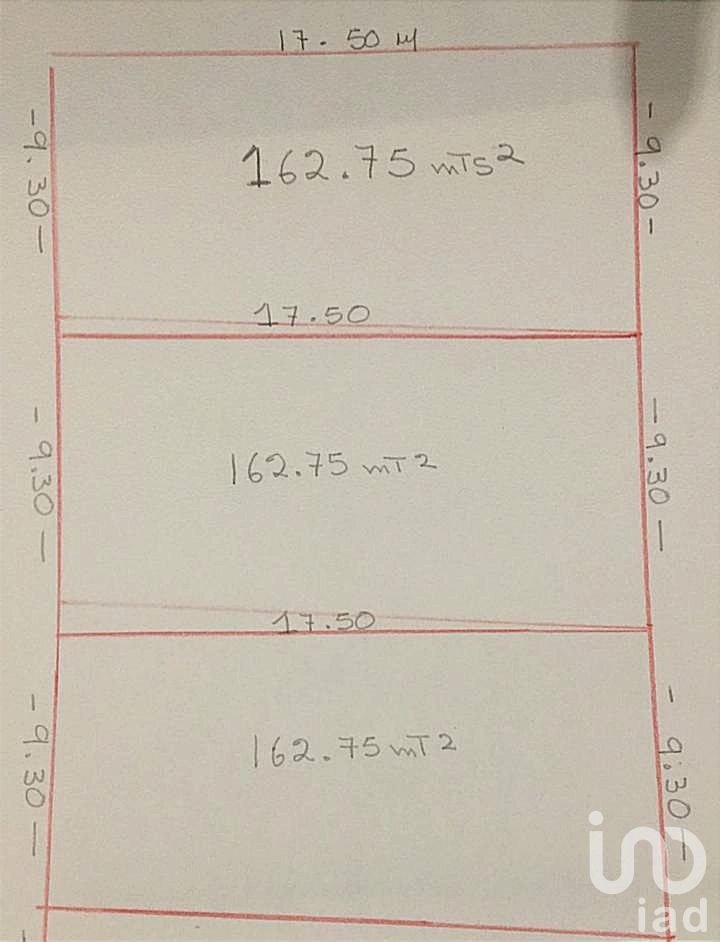 17.50 M
-9.30-
162.75 mTs2
-9.30-
17.50
-9.30-
162.75 mT2
-9.30-
17.50
-9.30-
162.75 mT2
-9.30-
iad